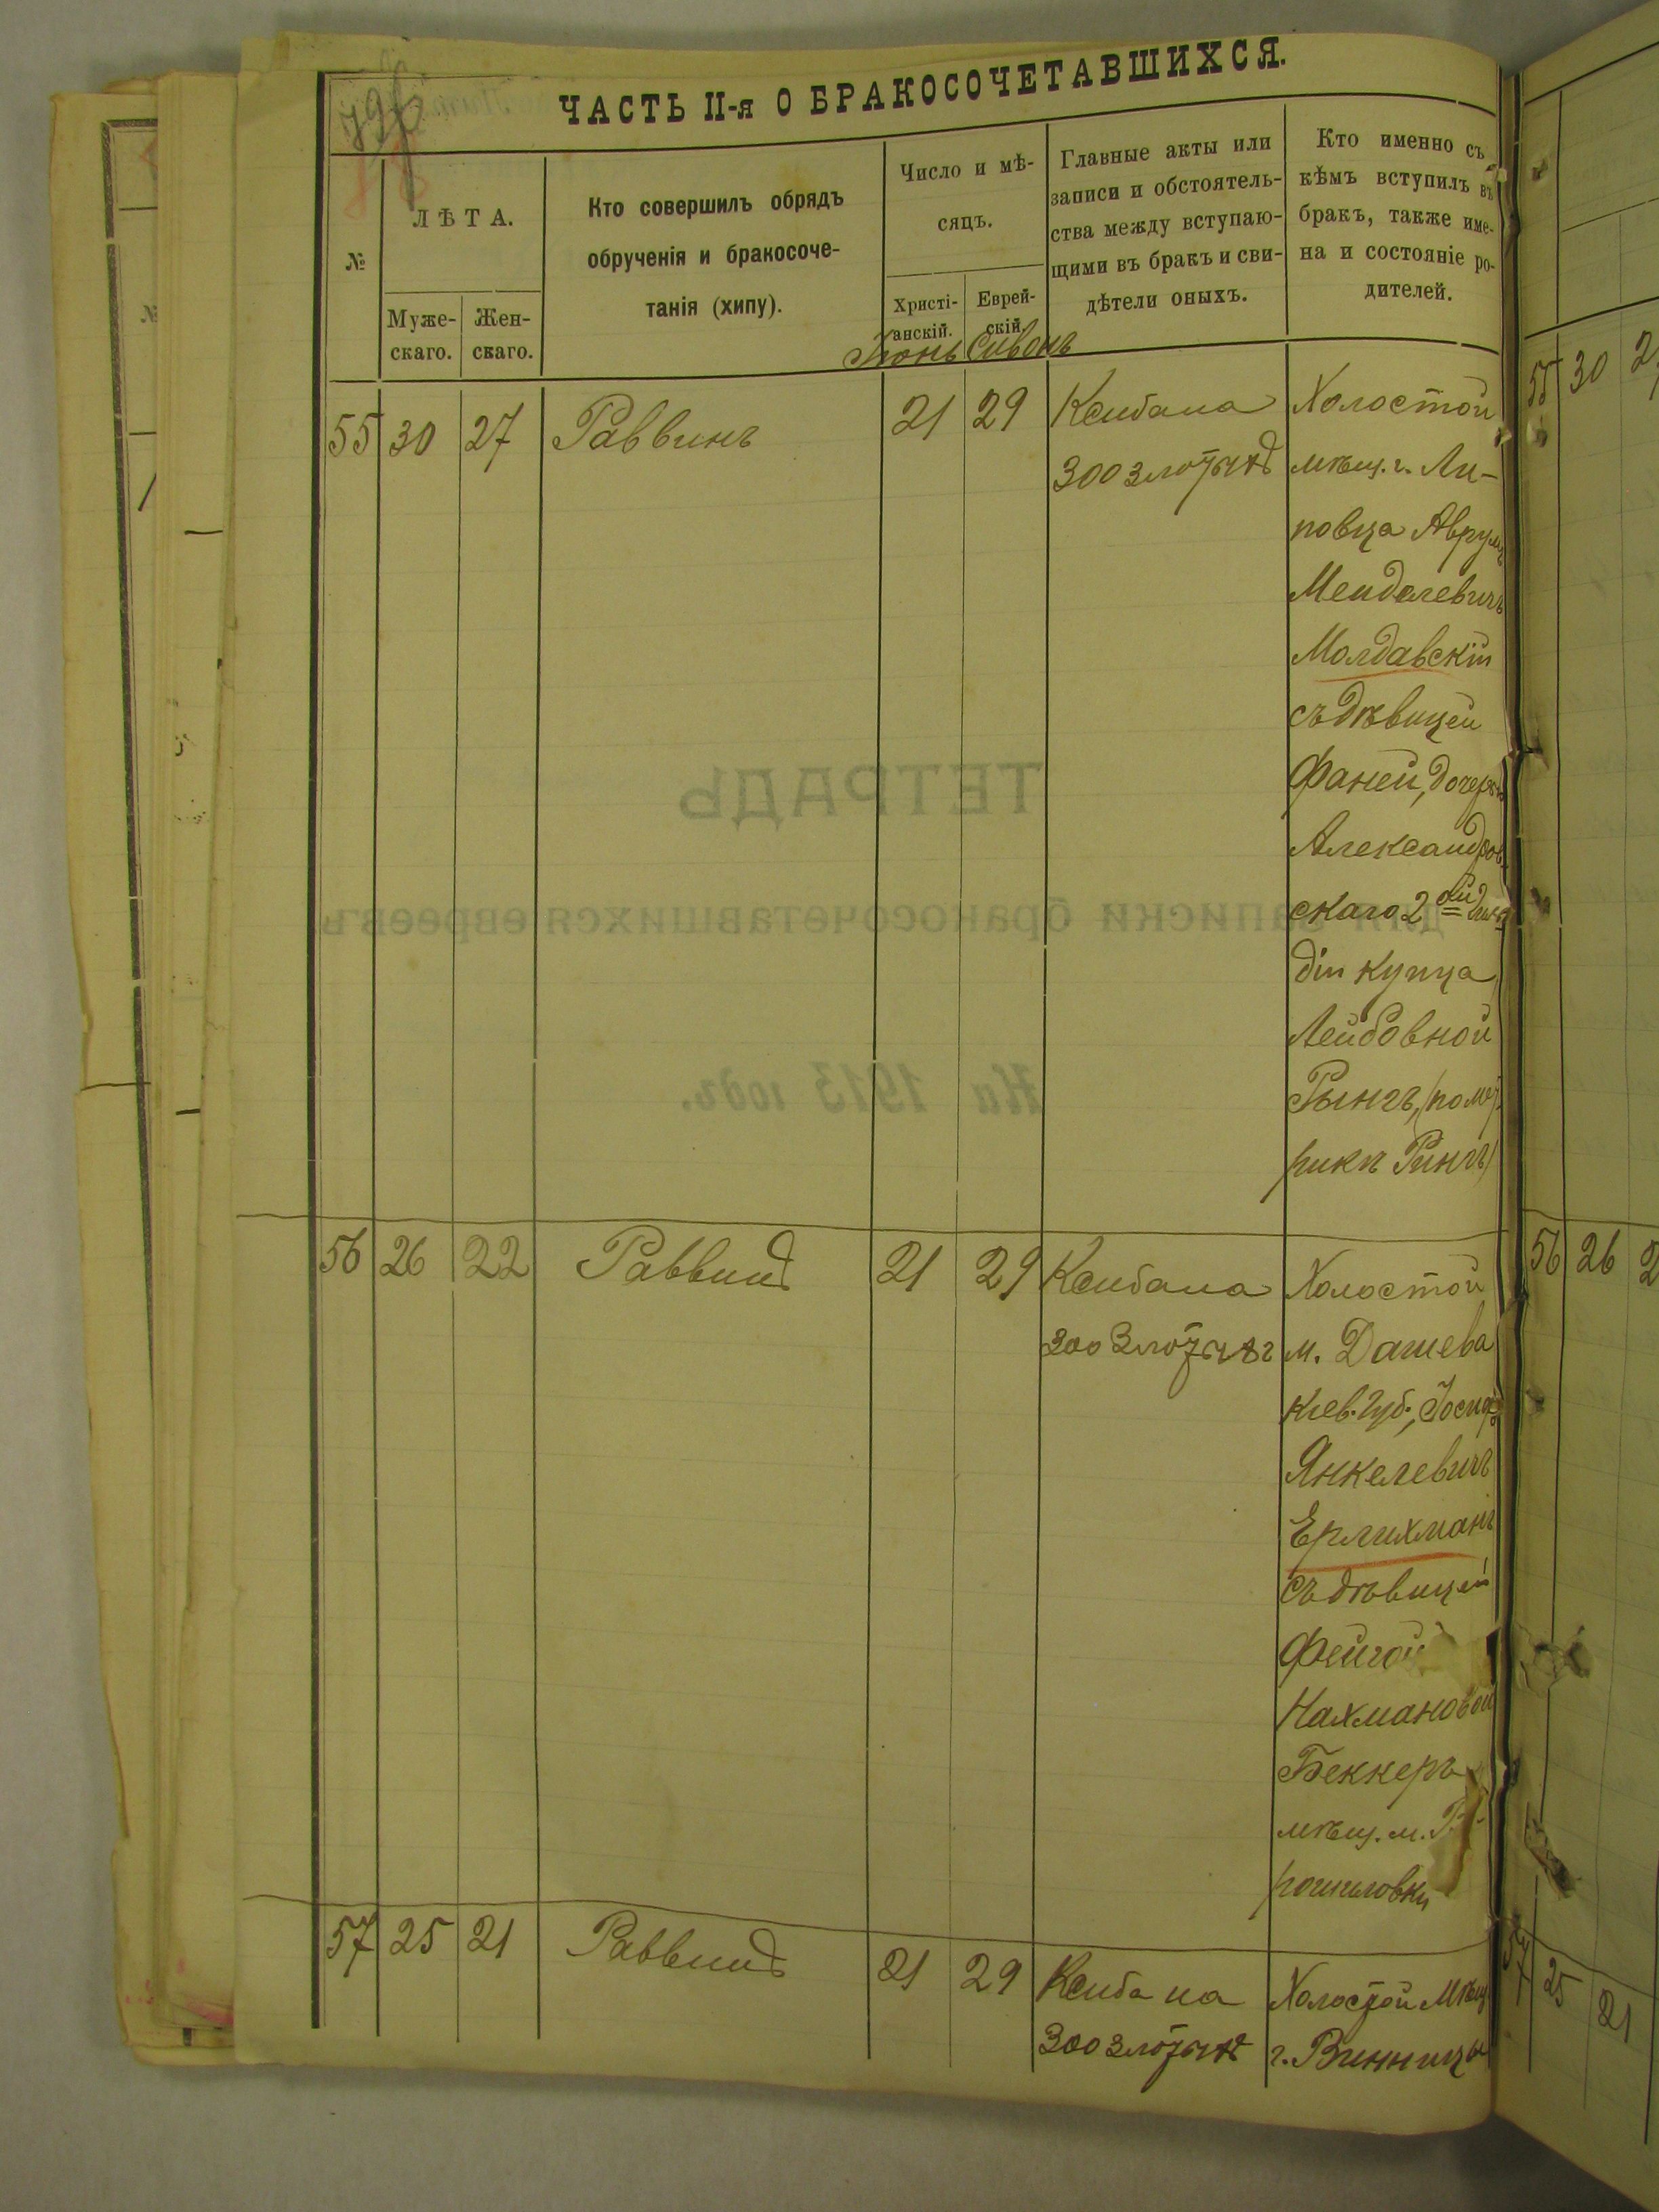 ЧАСТЬ II-я О БРАКОСОЧЕТАВШИХСЯ.
№
ЛѢТА.
Муже-
скаго.
Жен-
скаго.
Кто совершилъ обрядъ
обрученія и бракосоче-
танія (хипу).
Число и мѣ-
сяцъ.
Христі-
анскій.
Еврей-
скій.
Іюнь Сивонъ
Главные акты или
записи и обстоятель-
ства между вступаю-
щими въ бракъ и сви-
дѣтели оныхъ.
Кто именно съ
кѣмъ вступилъ въ
бракъ, также име-
на и состояніе ро-
дителей.
55 30 27 Раввинъ 21 29 Ксиба на
300 злотыхъ
Холостой
мѣщ. г. Ли-
повца Аврумъ
Менделевичъ
Молдавскій
съ дѣвицей
Фаней, дочерью
Александров-
скаго 2ой гиль-
діи купца
Лейбовной
Рынгъ, (по мет-
рикѣ Рингъ)
56 26 22 Раввинъ 21 29 Ксиба на
300 Злотыхъ
Холостой
м. Дашева
Кіев. губ., Іосифъ
Янкелевичъ
Ерлихманъ
съ дѣвицей
Фейгой
Нахмановой
Беккеръ
мѣщ. м.
рошиловки
57 25 21 Раввинъ 21 29 Ксиба на
300 злотыхъ
Холостой Мѣщ.
г. Винницы
ТЕТРАДЬ
для записки бракосочетавшихся евреевъ
На 1913 годъ.
55 30
56 26
57 25 21